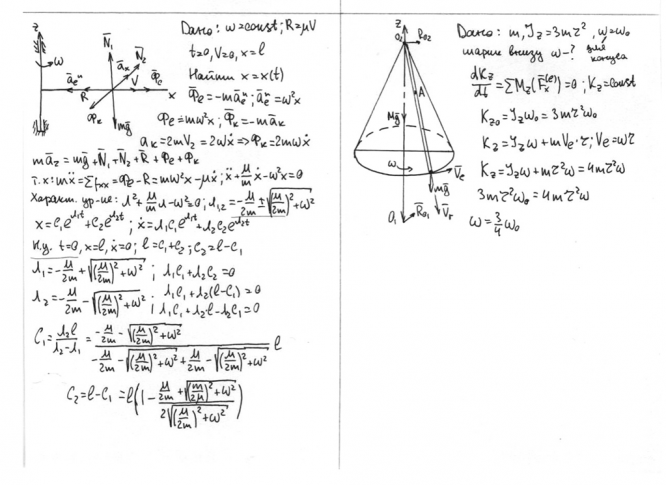 Дано: ω=const; R=μV
t=0, V=0, x=l
Найти x=x(t)
Φ̄e=-māeⁿ; āeⁿ=ω²x
Φe=mω²x; Φ̄k=-māk
ak=2mVr=2ωẋ=>Φk=2mωẋ
z
ω
N̄1
N̄2
āk
V
āeⁿ
R
Φ̄e
x
Φk
mḡ
māz=mḡ+N̄1+N̄2+R̄+Φe+Φk
т.x: mẍ=ΣFxx=Φe-R=mω²x-μẋ; ẍ+μ/m ẋ-ω²x=0
Характ. ур-ие: λ²+μ/m λ-ω²=0; λ1,2=-μ/2m±√((μ/2m)²+ω²)
x=C1e^λ1t+C2e^λ2t; ẋ=λ1C1e^λ1t+λ2C2e^λ2t
н.у. t=0, x=l, ẋ=0; l=C1+C2; C2=l-C1
λ1=-μ/2m+√((μ/2m)²+ω²); λ1C1+λ2C2=0
λ2=-μ/2m-√((μ/2m)²+ω²); λ1C1+λ2(l-C1)=0
λ1C1+λ2·l-λ2C1=0
C1=λ2l/(λ2-λ1)=(-μ/2m-√((μ/2m)²+ω²))/(-μ/2m-√((μ/2m)²+ω²)+μ/2m-√((μ/2m)²+ω²)) l
C2=l-C1=l(1-(μ/2m+√((m/2μ)²+ω²))/(2√((μ/2m)²+ω²)))
z
R̄02
A
Mḡ
ω
V̄e
mḡ
V̄r
R̄01
Дано: m, Jz=3mr², ω=ω0
шарик внизу ω-? для конуса
dKz/dt=ΣMz(F̄x^(e))=0; Kz=const
Kz0=Jzω0=3mr²ω0
Kz=Jzω+mVe·r; Ve=ωr
Kz=Jzω+mr²ω=4mr²ω
3mr²ω0=4mr²ω
ω=3/4 ω0